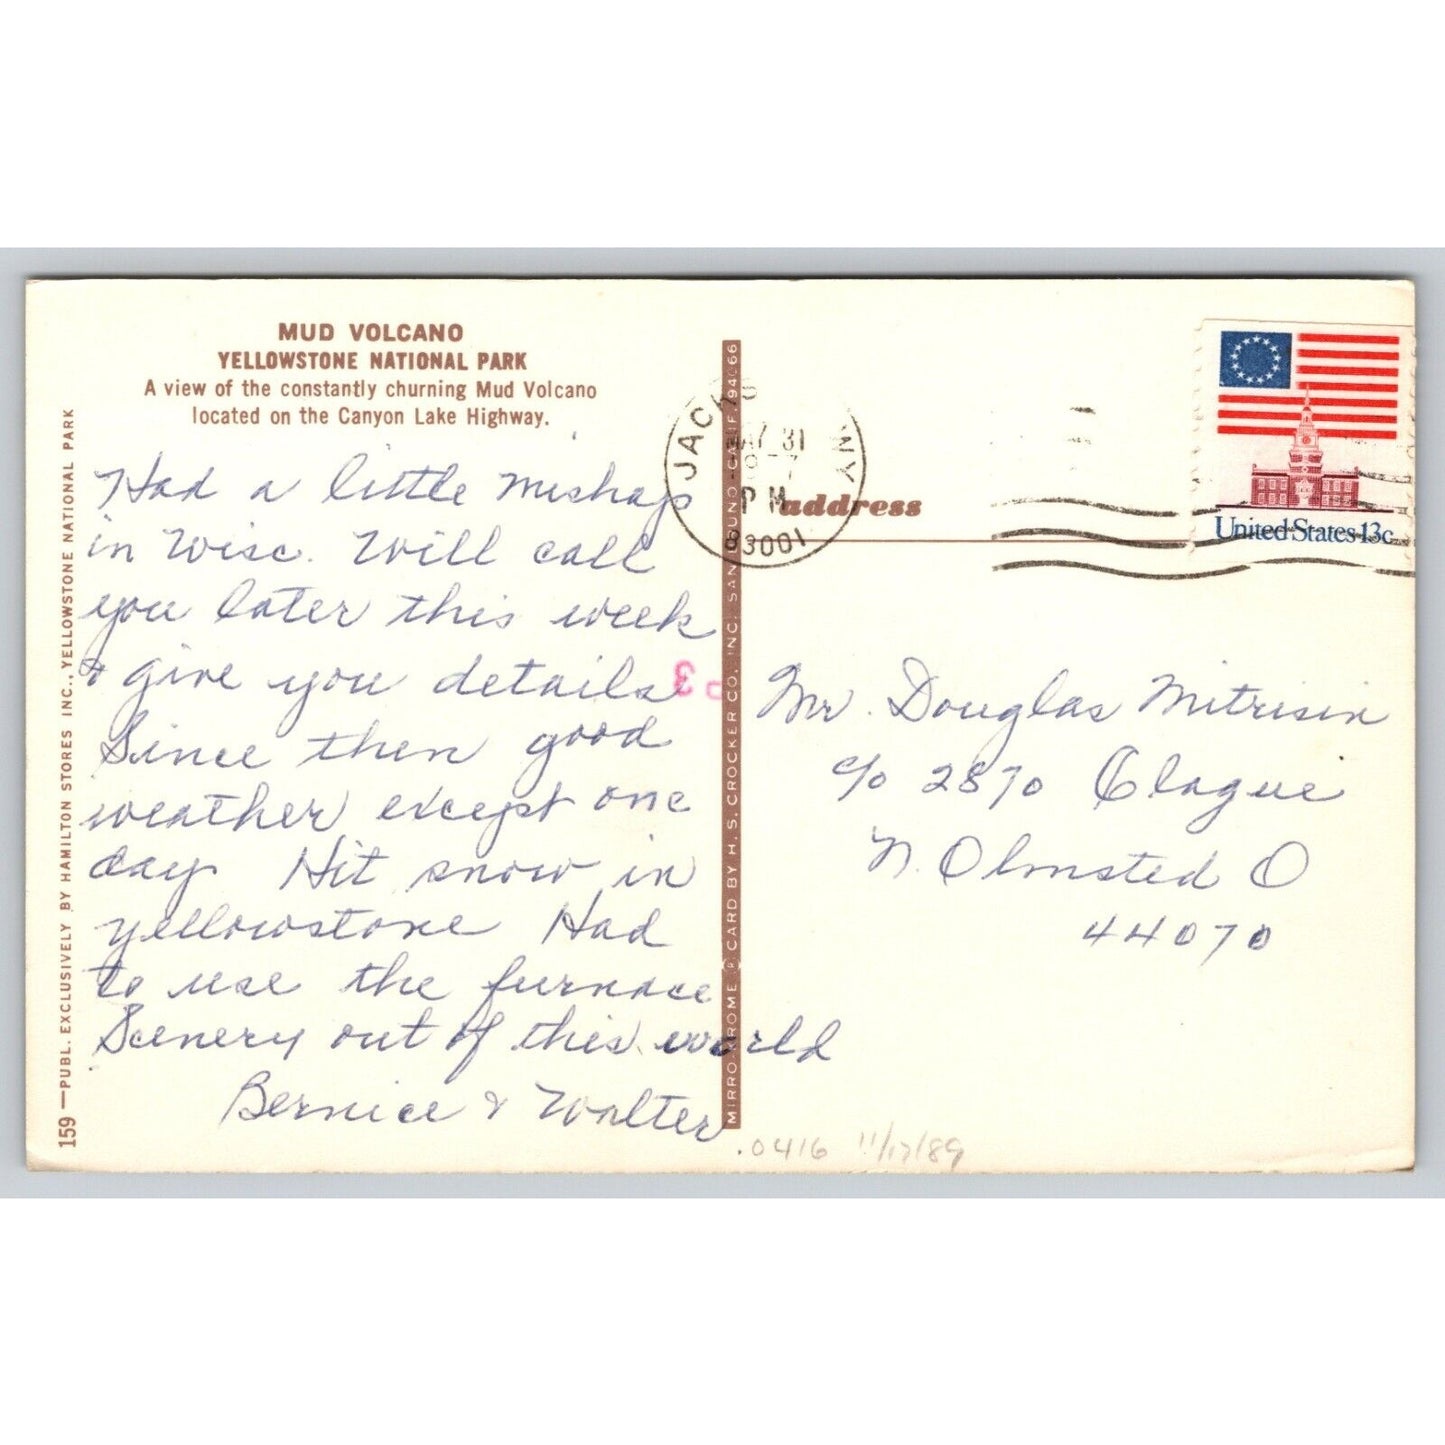 MUD VOLCANO
YELLOWSTONE NATIONAL PARK
A view of the constantly churning Mud Volcano
located on the Canyon Lake Highway.
Had a little mishap
in Wisc. Will call
you later this week
& give you details
Since then good
weather except one
day Hit snow in
yellowstone Had
to use the furnace
Scenery out of this world
Bernice & Walter
159—PUBL. EXCLUSIVELY BY HAMILTON STORES INC., YELLOWSTONE NATIONAL PARK
MIRRO-KROME ® CARD BY H. S. CROCKER CO., INC., SAN BRUNO, CALIF. 94066
MAY 31
PM
83001
address
United States 13c
Mr. Douglas Mitrisin
c/o 2870 Clague
N. Olmsted O
44070
.0416 11/17/89